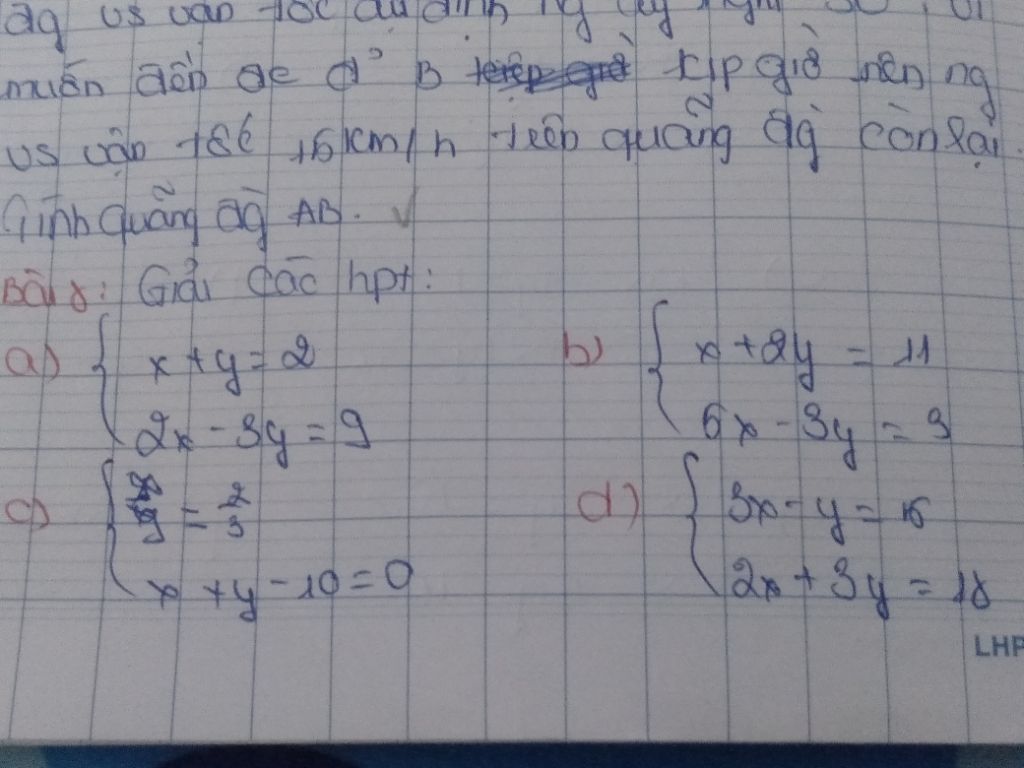 muốn đến đc đ' B kịp giờ nên ng
vs vận tốc 15 km/h trên quãng đg còn lại.
Tính quãng đg AB. ✓
Bài 8: Giải các hpt:
a) { x + y = 2
2x - 3y = 9
b) { x + 2y = 11
5x - 3y = 3
c) { x/y = 2/3
x + y - 10 = 0
d) { 3x - y = 5
2x + 3y = 18
LHP